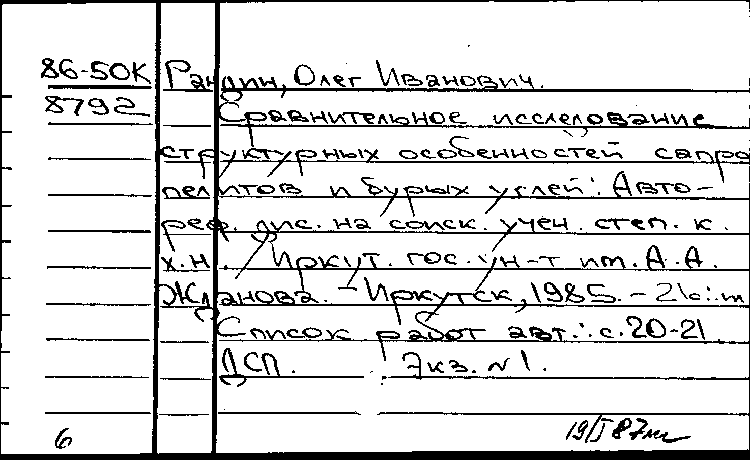 86-50К Рандин, Олег Иванович.
8792 Сравнительное исследование
структурных особенностей сапро
пелитов и бурых углей: Авто-
реф. дис. на соиск. учен. степ. к.
х.н. / Иркут. гос. ун-т им. А.А.
Жданова. - Иркутск, 1985. - 26
Список работ авт.: с. 20-21
ДСП. Экз. №1.
6 19/I 87